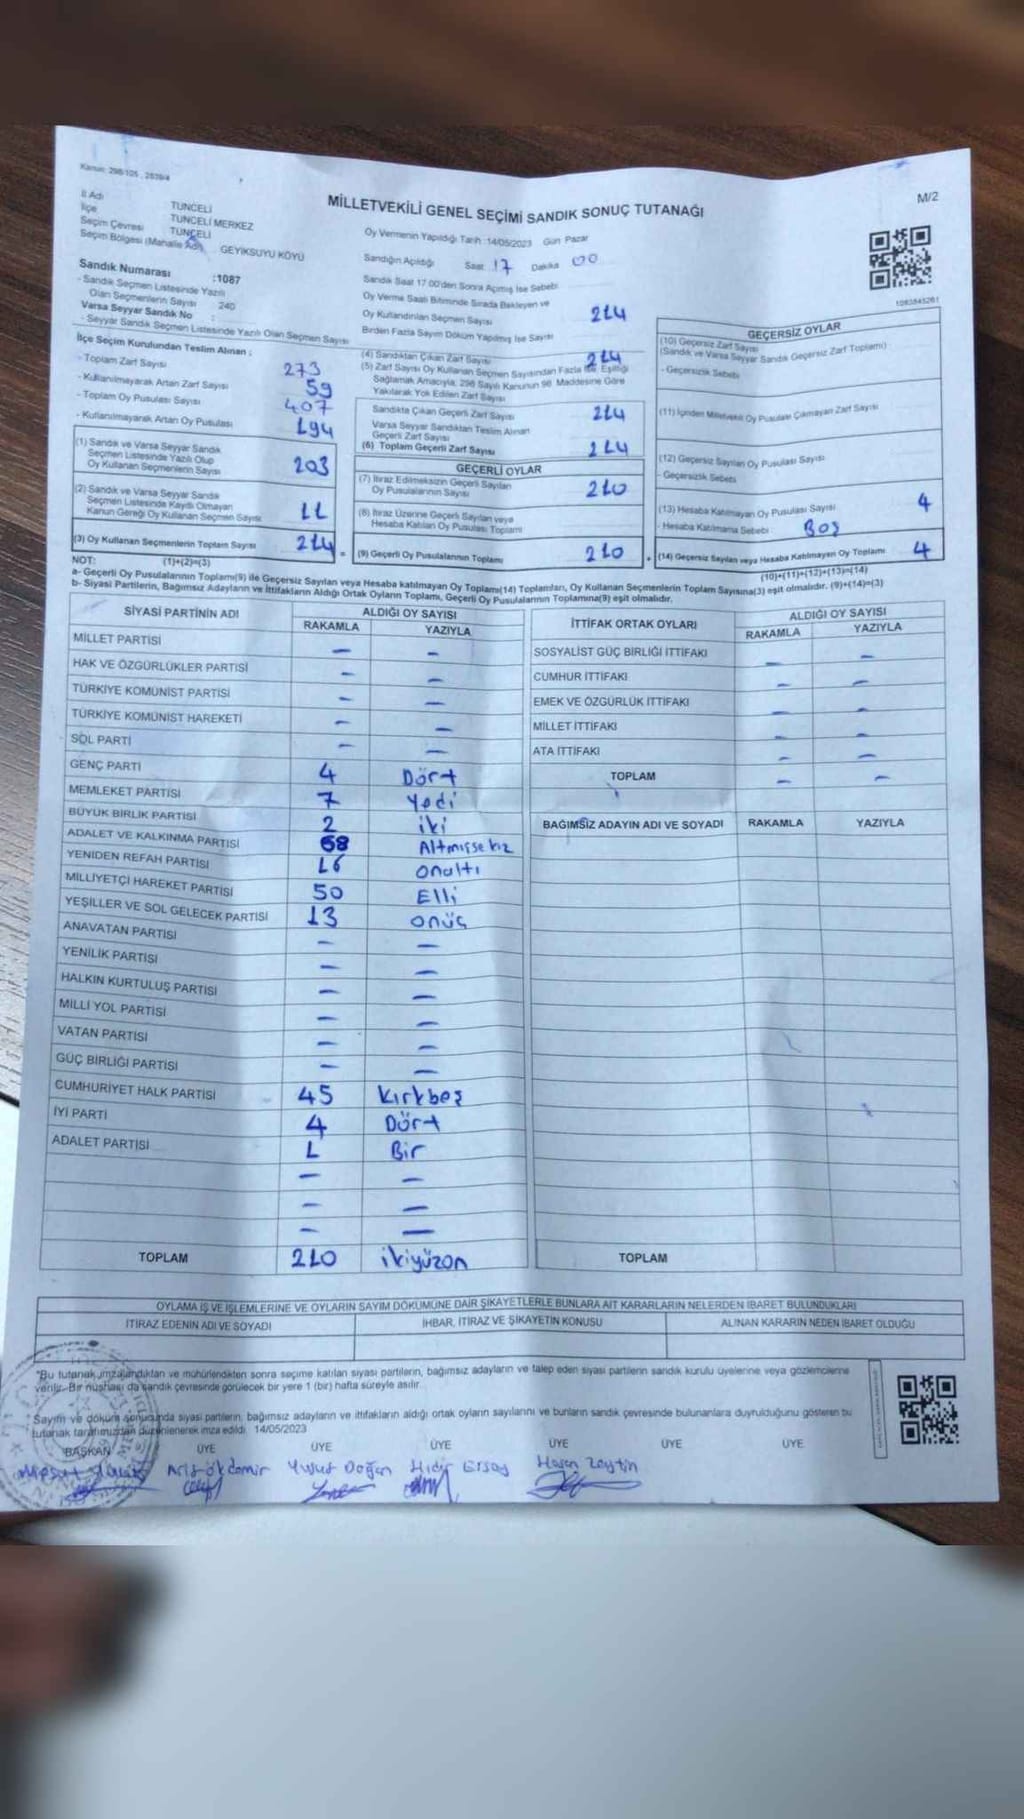 Kanun: 298/105 , 2839/4
M/2
MİLLETVEKİLİ GENEL SEÇİMİ SANDIK SONUÇ TUTANAĞI
İl Adı TUNCELİ
İlçe TUNCELİ MERKEZ
Seçim Çevresi TUNCELİ
Seçim Bölgesi (Mahalle Adı) GEYİKSUYU KÖYÜ
Sandık Numarası :1087
- Sandık Seçmen Listesinde Yazılı
Olan Seçmenlerin Sayısı 240
Varsa Seyyar Sandık No :
- Seyyar Sandık Seçmen Listesinde Yazılı Olan Seçmen Sayısı
Oy Vermenin Yapıldığı Tarih :14/05/2023 Gün Pazar
Sandığın Açıldığı Saat 17 Dakika 00
Sandık Saat 17.00'den Sonra Açılmış İse Sebebi
Oy Verme Saati Bitiminde Sırada Bekleyen ve
Oy Kullandırılan Seçmen Sayısı 214
Birden Fazla Sayım Döküm Yapılmış İse Sayısı
1083845261
İlçe Seçim Kurulundan Teslim Alınan :
- Toplam Zarf Sayısı 273
- Kullanılmayarak Artan Zarf Sayısı 59
- Toplam Oy Pusulası Sayısı 407
- Kullanılmayarak Artan Oy Pusulası 194
(1) Sandık ve Varsa Seyyar Sandık
Seçmen Listesinde Yazılı Olup
Oy Kullanan Seçmenlerin Sayısı 203
(2) Sandık ve Varsa Seyyar Sandık
Seçmen Listesinde Kayıtlı Olmayan
Kanun Gereği Oy Kullanan Seçmen Sayısı 11
(3) Oy Kullanan Seçmenlerin Toplam Sayısı 214
(1)+(2)=(3)
(4) Sandıktan Çıkan Zarf Sayısı 214
(5) Zarf Sayısı Oy Kullanan Seçmen Sayısından Fazla İse, Eşitliği
Sağlamak Amacıyla, 298 Sayılı Kanunun 98. Maddesine Göre
Yakılarak Yok Edilen Zarf Sayısı
Sandıkta Çıkan Geçerli Zarf Sayısı 214
Varsa Seyyar Sandıktan Teslim Alınan
Geçerli Zarf Sayısı
(6) Toplam Geçerli Zarf Sayısı 214
GEÇERLİ OYLAR
(7) İtiraz Edilmeksizin Geçerli Sayılan
Oy Pusulalarının Sayısı 210
(8) İtiraz Üzerine Geçerli Sayılan veya
Hesaba Katılan Oy Pusulası Toplamı
(9) Geçerli Oy Pusulalarının Toplamı 210
GEÇERSİZ OYLAR
(10) Geçersiz Zarf Sayısı
(Sandık ve Varsa Seyyar Sandık Geçersiz Zarf Toplamı)
- Geçersizlik Sebebi
(11) İçinden Milletvekili Oy Pusulası Çıkmayan Zarf Sayısı
(12) Geçersiz Sayılan Oy Pusulası Sayısı
- Geçersizlik Sebebi
(13) Hesaba Katılmayan Oy Pusulası Sayısı 4
- Hesaba Katılmama Sebebi Boş
(14) Geçersiz Sayılan veya Hesaba Katılmayan Oy Toplamı 4
(10)+(11)+(12)+(13)=(14)
NOT:
a- Geçerli Oy Pusulalarının Toplamı(9) ile Geçersiz Sayılan veya Hesaba katılmayan Oy Toplamı(14) Toplamları, Oy Kullanan Seçmenlerin Toplam Sayısına(3) eşit olmalıdır. (9)+(14)=(3)
b- Siyasi Partilerin, Bağımsız Adayların ve İttifakların Aldığı Ortak Oyların Toplamı, Geçerli Oy Pusulalarının Toplamına(9) eşit olmalıdır.
SİYASİ PARTİNİN ADI ALDIĞI OY SAYISI
RAKAMLA YAZIYLA
MİLLET PARTİSİ – –
HAK VE ÖZGÜRLÜKLER PARTİSİ – –
TÜRKİYE KOMÜNİST PARTİSİ – –
TÜRKİYE KOMÜNİST HAREKETİ – –
SOL PARTİ – –
GENÇ PARTİ 4 Dört
MEMLEKET PARTİSİ 7 Yedi
BÜYÜK BİRLİK PARTİSİ 2 iki
ADALET VE KALKINMA PARTİSİ 68 Altmışsekiz
YENİDEN REFAH PARTİSİ 16 onaltı
MİLLİYETÇİ HAREKET PARTİSİ 50 Elli
YEŞİLLER VE SOL GELECEK PARTİSİ 13 onüç
ANAVATAN PARTİSİ – –
YENİLİK PARTİSİ – –
HALKIN KURTULUŞ PARTİSİ – –
MİLLİ YOL PARTİSİ – –
VATAN PARTİSİ – –
GÜÇ BİRLİĞİ PARTİSİ – –
CUMHURİYET HALK PARTİSİ 45 Kırkbeş
İYİ PARTİ 4 Dört
ADALET PARTİSİ 1 Bir
– –
– –
– –
TOPLAM 210 ikiyüzon
İTTİFAK ORTAK OYLARI ALDIĞI OY SAYISI
RAKAMLA YAZIYLA
SOSYALİST GÜÇ BİRLİĞİ İTTİFAKI – –
CUMHUR İTTİFAKI – –
EMEK VE ÖZGÜRLÜK İTTİFAKI – –
MİLLET İTTİFAKI – –
ATA İTTİFAKI – –
TOPLAM – –
BAĞIMSIZ ADAYIN ADI VE SOYADI RAKAMLA YAZIYLA
TOPLAM
OYLAMA İŞ VE İŞLEMLERİNE VE OYLARIN SAYIM DÖKÜMÜNE DAİR ŞİKAYETLERLE BUNLARA AİT KARARLARIN NELERDEN İBARET BULUNDUKLARI
İTİRAZ EDENİN ADI VE SOYADI İHBAR, İTİRAZ VE ŞİKAYETİN KONUSU ALINAN KARARIN NEDEN İBARET OLDUĞU
"Bu tutanak imzalandıktan ve mühürlendikten sonra seçime katılan siyasi partilerin, bağımsız adayların ve talep eden siyasi partilerin sandık kurulu üyelerine veya gözlemcilerine
verilir. Bir nüshası da sandık çevresinde görülecek bir yere 1 (bir) hafta süreyle asılır.
Sayım ve döküm sonucunda siyasi partilerin, bağımsız adayların ve ittifakların aldığı ortak oyların sayılarını ve bunların sandık çevresinde bulunanlara duyrulduğunu gösteren bu
tutanak tarafımızdan düzenlenerek imza edildi. 14/05/2023
BAŞKAN ÜYE ÜYE ÜYE ÜYE ÜYE ÜYE
Yusuf Doğan Hıdır Ersoy Hasan Zeytin